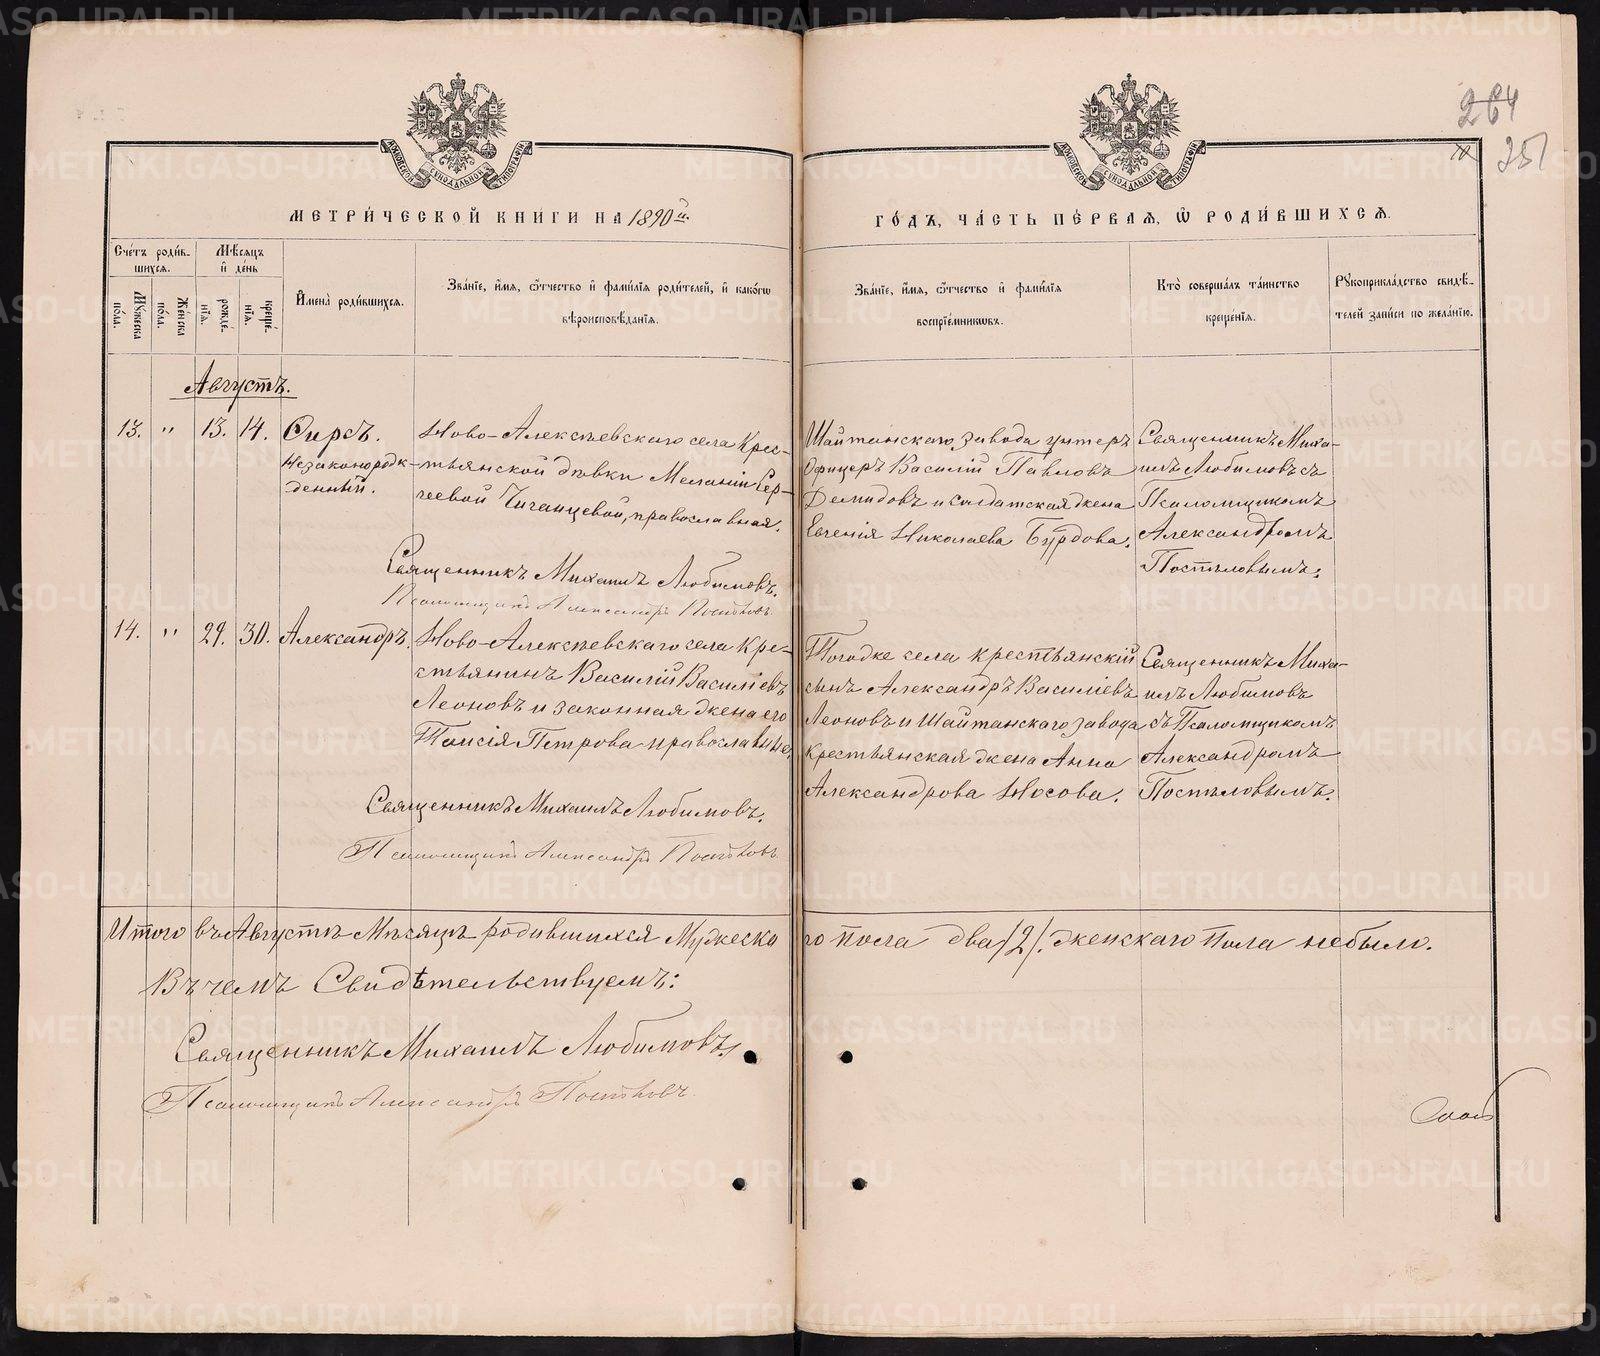 264
251
10
МОСКОВСКОЙ СѴНОДАЛЬНОЙ ТИПОГРАФІИ
МОСКОВСКОЙ СѴНОДАЛЬНОЙ ТИПОГРАФІИ
МЕТРИ́ЧЕСКОЙ КНИГИ НА 1890й.
ГО́ДЪ, ЧА́СТЬ ПЕ́РВАЯ, Ѿ РОДИ́ВШИХСЯ.
Сче́тъ роди́в-
шихся.
Мꙋжеска по́ла.
Же́нска по́ла.
Мѣ́сяцъ
и҆ де́нь
рожде́-
нїя.
креще́-
нїя.
И҆мена̀ роди́вшихся.
Зва́нїе, и҆́мя, ѻ҆́тчество и҆ фами́лїя роди́телей, и҆ како́гѡ
вѣроисповѣ́данїя.
Зва́нїе, и҆́мя, ѻ҆́тчество и҆ фами́лїя
воспрїе́мникѡвъ.
Кто̀ соверша́лъ та́инство
креще́нїя.
Рꙋкоприкла́дство свидѣ́-
телей за́писи по жела́нїю.
Августъ.
13. " 13. 14. Сирсъ.
Незаконорож-
денный.
Ново-Алексѣевскаго села Крес-
тьянской дѣвки Меланіи Сер-
геевой Чиганцевой, православная.
Священникъ Михаилъ Любимовъ.
Псаломщикъ Александръ Постѣловъ.
Шайтанскаго завода унтеръ
Офицеръ Василій Павловъ
Демидовъ и солдатская жена
Евгенія Николаева Бурдова.
Священникъ Миха-
илъ Любимовъ съ
Псаломщикомъ
Александромъ
Постѣловымъ.
14. " 29. 30. Александръ.
Ново-Алексѣевскаго села Кре-
стьянинъ Василій Василіевъ
Леоновъ и законная жена его
Таисія Петрова православные.
Священникъ Михаилъ Любимовъ.
Псаломщикъ Александръ Постѣловъ.
Тогодже села крестьянскій
сынъ Александръ Василіевъ
Леоновъ и Шайтанскаго завода
крестьянская жена Анна
Александрова Носова.
Священникъ Миха-
илъ Любимовъ
съ Псаломщикомъ
Александромъ
Постѣловымъ.
Итого въ Августѣ Мѣсяцѣ родившихся Мужеска
го пола два /2/. женскаго Пола небыло.
Въ чемъ Свидѣтельствуемъ:
Священникъ Михаилъ Любимовъ.
Псаломщикъ Александръ Постѣловъ.